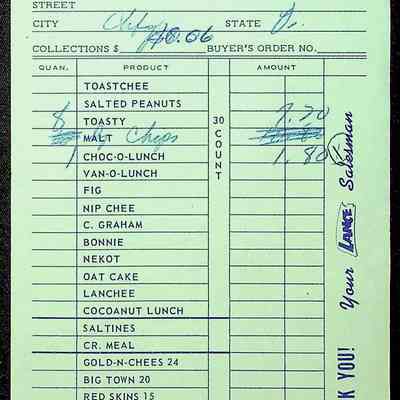 STREET
CITY STATE
COLLECTIONS $ 10.06 BUYER'S ORDER NO.
QUAN. PRODUCT AMOUNT
TOASTCHEE
SALTED PEANUTS
8 TOASTY 7.20
MALT Chips
1 CHOC-O-LUNCH 1.80
VAN-O-LUNCH
FIG
NIP CHEE
C. GRAHAM
BONNIE
NEKOT
OAT CAKE
LANCHEE
COCOANUT LUNCH
SALTINES
CR. MEAL
GOLD-N-CHEES 24
BIG TOWN 20
RED SKINS 15
30 COUNT
K YOU! Your LANCE Salesman